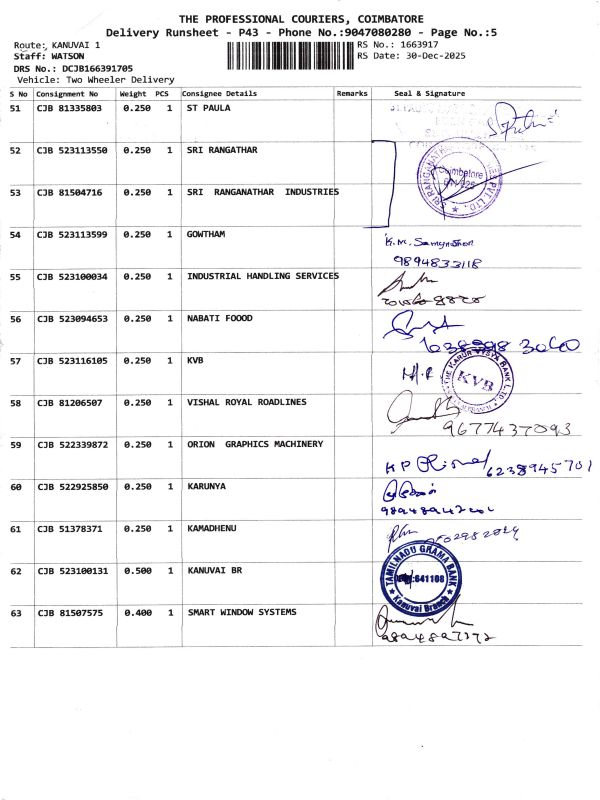 THE PROFESSIONAL COURIERS, COIMBATORE
Delivery Runsheet - P43 - Phone No.:9047080280 - Page No.:5
Route: KANUVAI 1
RS No.: 1663917
Staff: WATSON
RS Date: 30-Dec-2025
DRS No.: DCJB166391705
Vehicle: Two Wheeler Delivery
S No Consignment No Weight PCS Consignee Details Remarks Seal & Signature
51 CJB 81335803 0.250 1 ST PAULA
52 CJB 523113550 0.250 1 SRI RANGATHAR
Coimbatore
53 CJB 81504716 0.250 1 SRI RANGANATHAR INDUSTRIES
54 CJB 523113599 0.250 1 GOWTHAM
K.M.
9894833118
55 CJB 523100034 0.250 1 INDUSTRIAL HANDLING SERVICES
56 CJB 523094653 0.250 1 NABATI FOOOD
57 CJB 523116105 0.250 1 KVB
THE KARUR VYSYA BANK LTD.
KVB
58 CJB 81206507 0.250 1 VISHAL ROYAL ROADLINES
9677437093
59 CJB 522339872 0.250 1 ORION GRAPHICS MACHINERY
KP 6238945701
60 CJB 522925850 0.250 1 KARUNYA
61 CJB 51378371 0.250 1 KAMADHENU
62 CJB 523100131 0.500 1 KANUVAI BR
TAMILNADU GRAMA BANK
641108
Kanuvai Branch
63 CJB 81507575 0.400 1 SMART WINDOW SYSTEMS